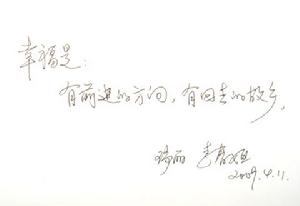 幸福是：
有前进的方向，有回去的故乡。
瑞丽
2009.4.11.